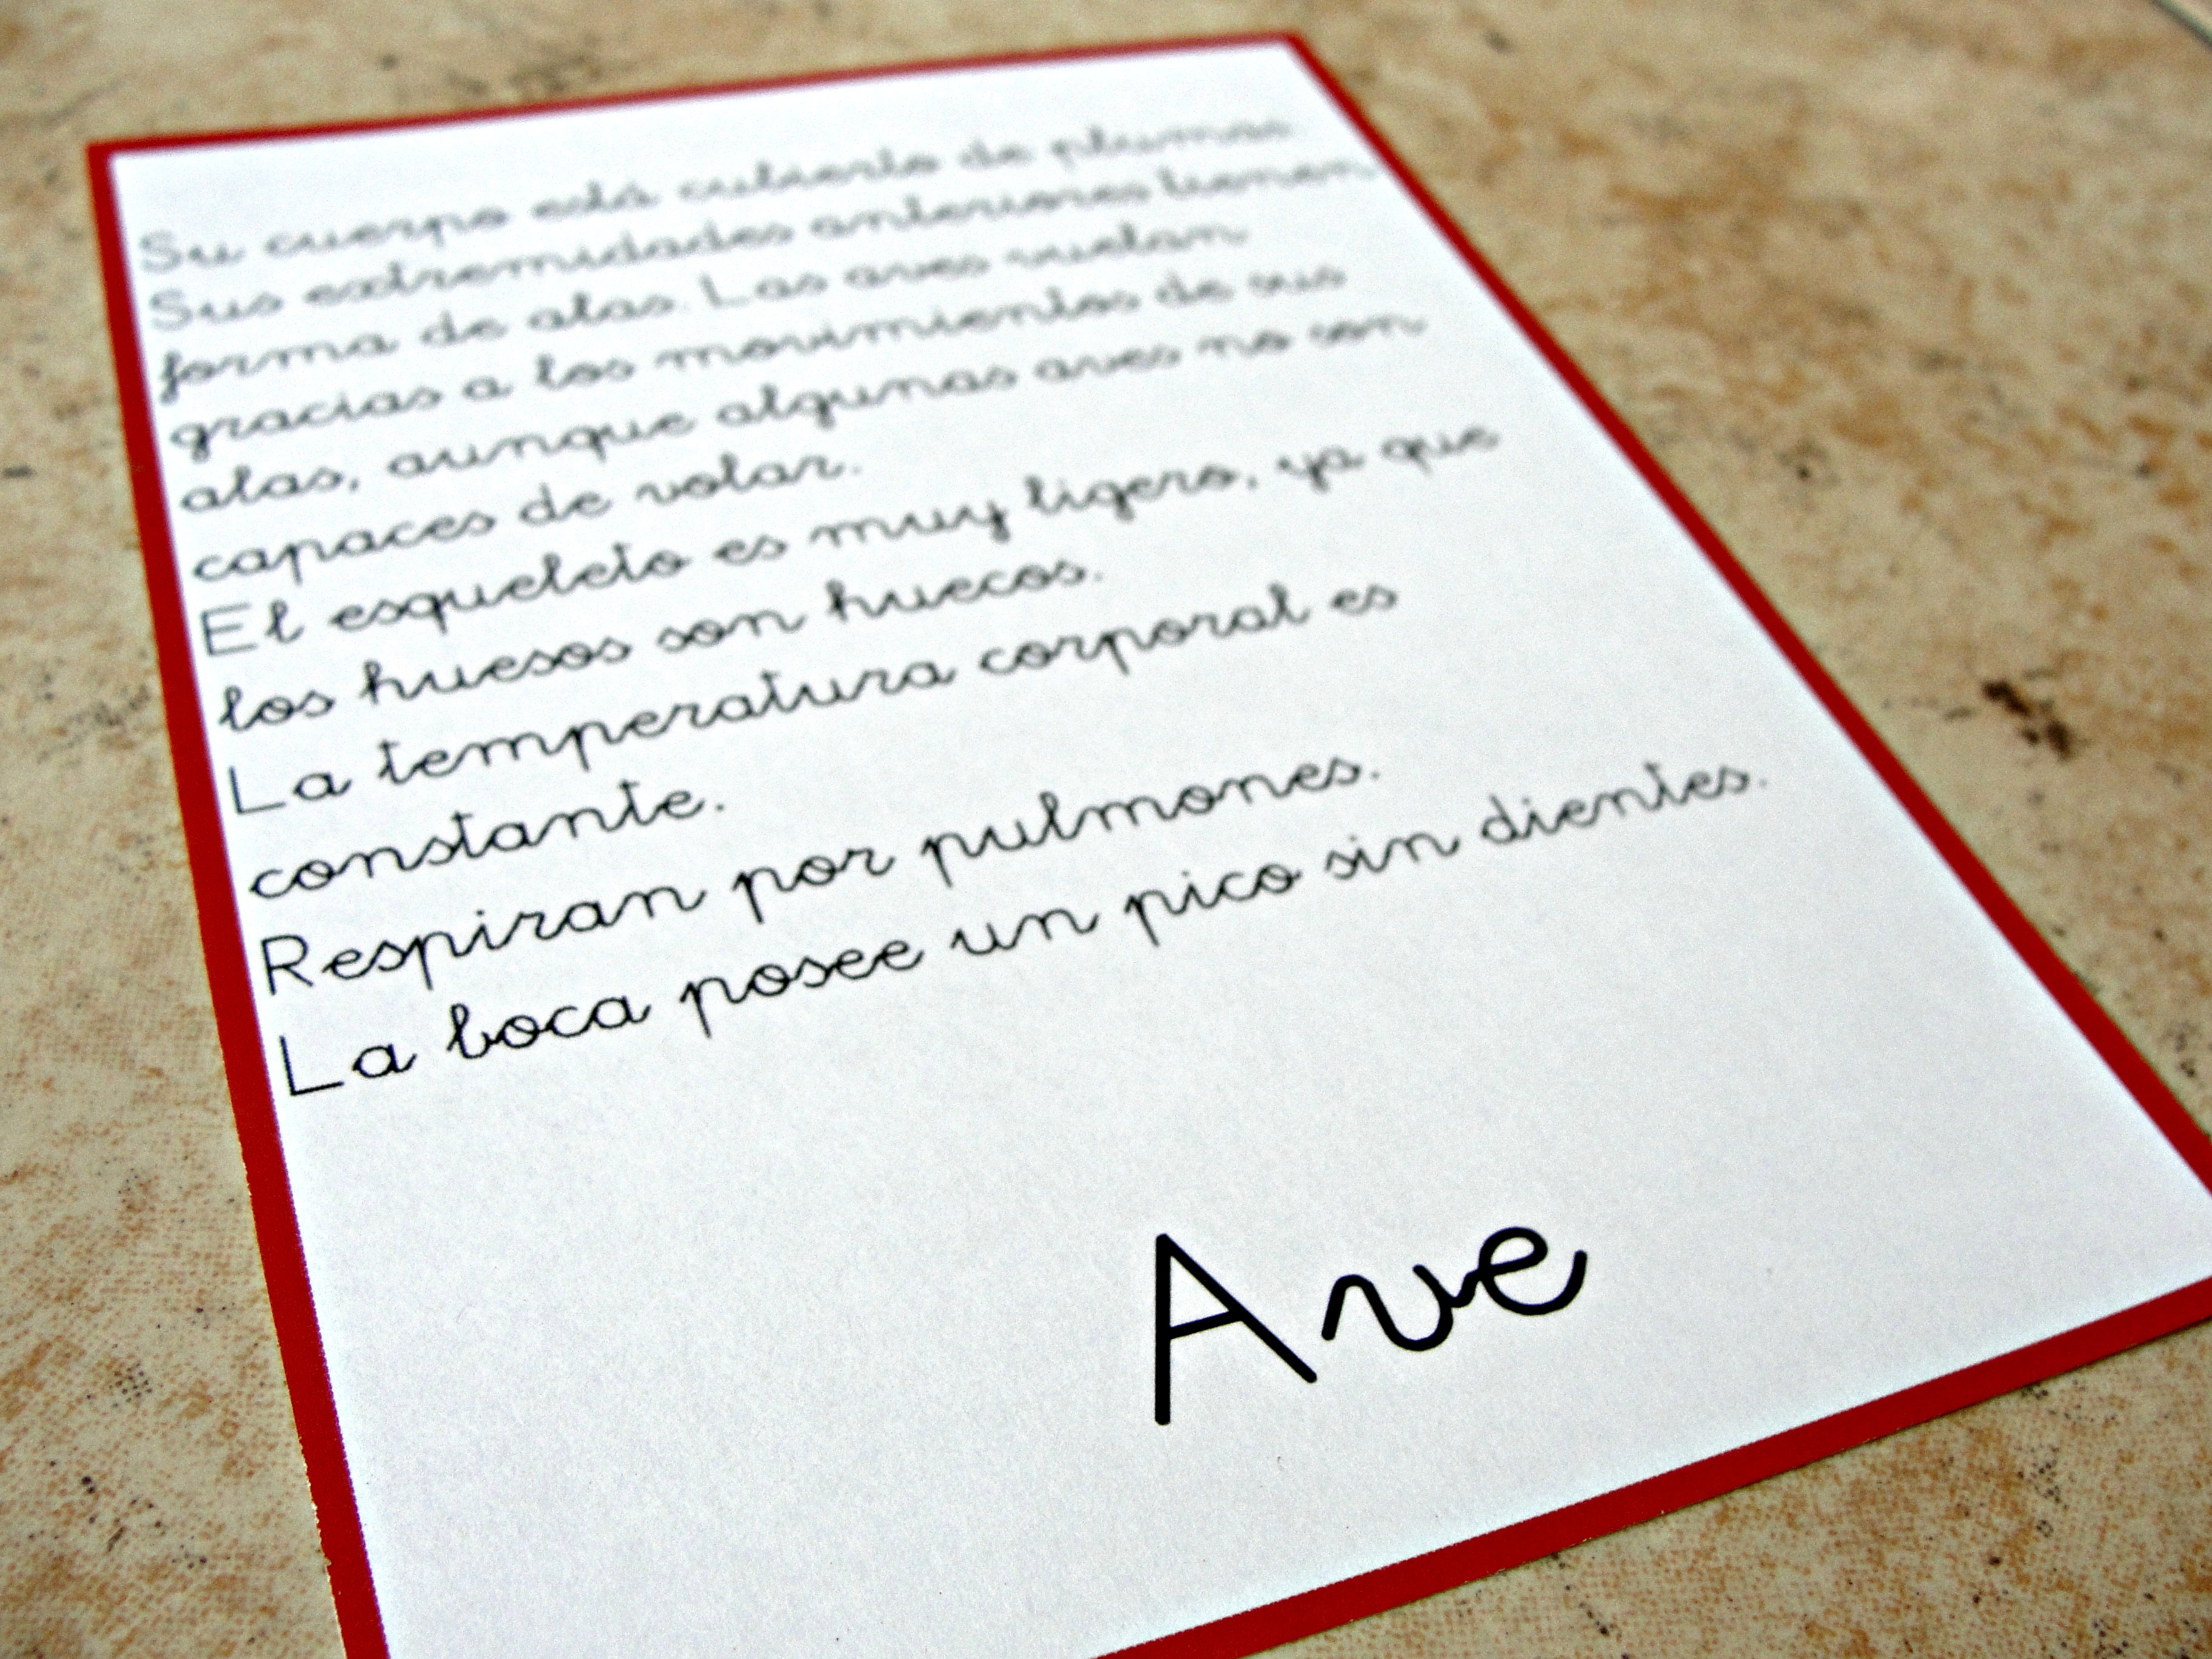 Su cuerpo está cubierto de plumas
Sus extremidades anteriores tienen
forma de alas. Las aves vuelan
gracias a los movimientos de sus
alas, aunque algunas aves no son
capaces de volar.
El esqueleto es muy ligero, ya que
los huesos son huecos.
La temperatura corporal es
constante.
Respiran por pulmones.
La boca posee un pico sin dientes.
Ave